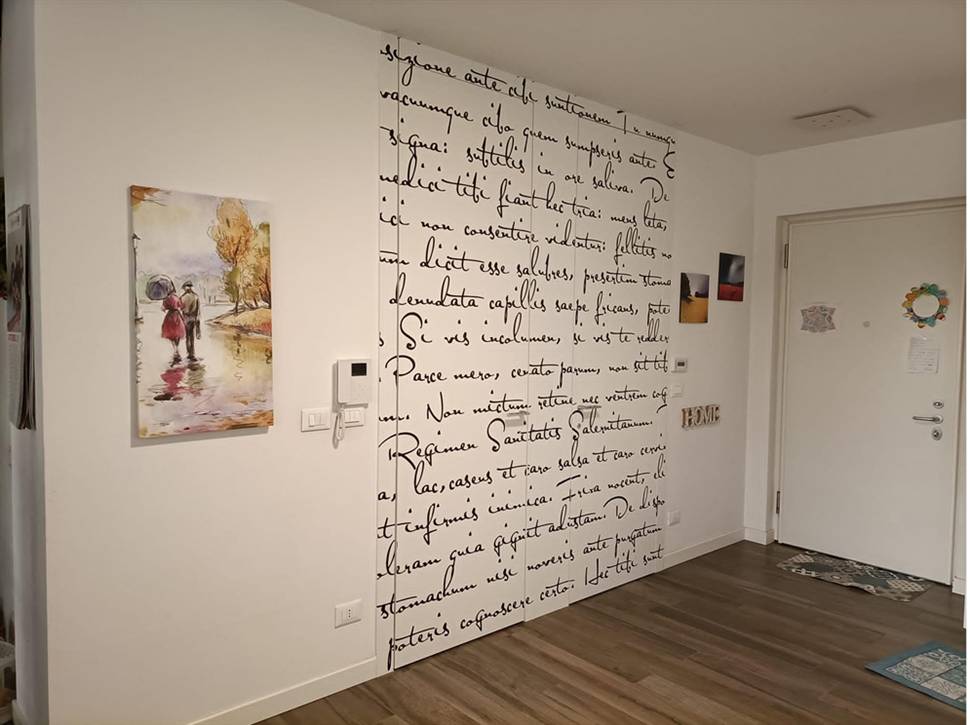 sizione ante cibi suntionem In nunqu
vacuumque cibo quem sumpseris ante. E
signa: subtilis in ore saliva. De
nedici tibi fiant hec tria: mens leta,
ici non consentire videntur: fellitis no
um dicit esse salubres, presertim stoma
denudata capillis saepe fricans, pote
s Si vis incolumen, si vis te redder
Parce mero, cenato parum, non sit tib
m. Non mictum retine nec ventrem cog
Regimen Sanitatis Salernitanum. T
a, lac, caseus et caro salsa et caro cervi
t infirmis inimica. Frixa nocent, eli
oleram quia gignit adustam. De dispo
stomachum nisi noveris ante purgatum
poteris cognoscere certo. Hec tibi sunt
HOME